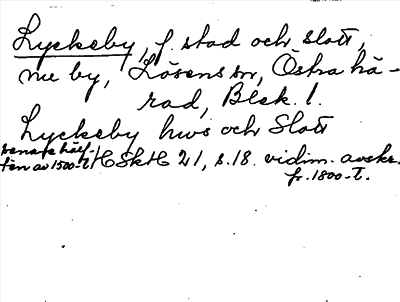 Lyckeby, f. stad och slott,
nu by, Lösens sn, Östra hä-
rad, Blek. l.
Lyckeby hws och Slott
senare hälf-
ten av 1500-t HSkH 21, s. 18. vidim. avskr.
fr. 1800-t.